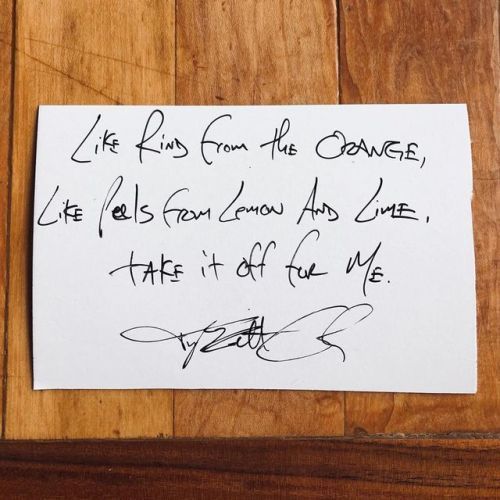 Like Rind From the ORANGE,
Like Peels From Lemon And Lime,
TAKE it off for Me.